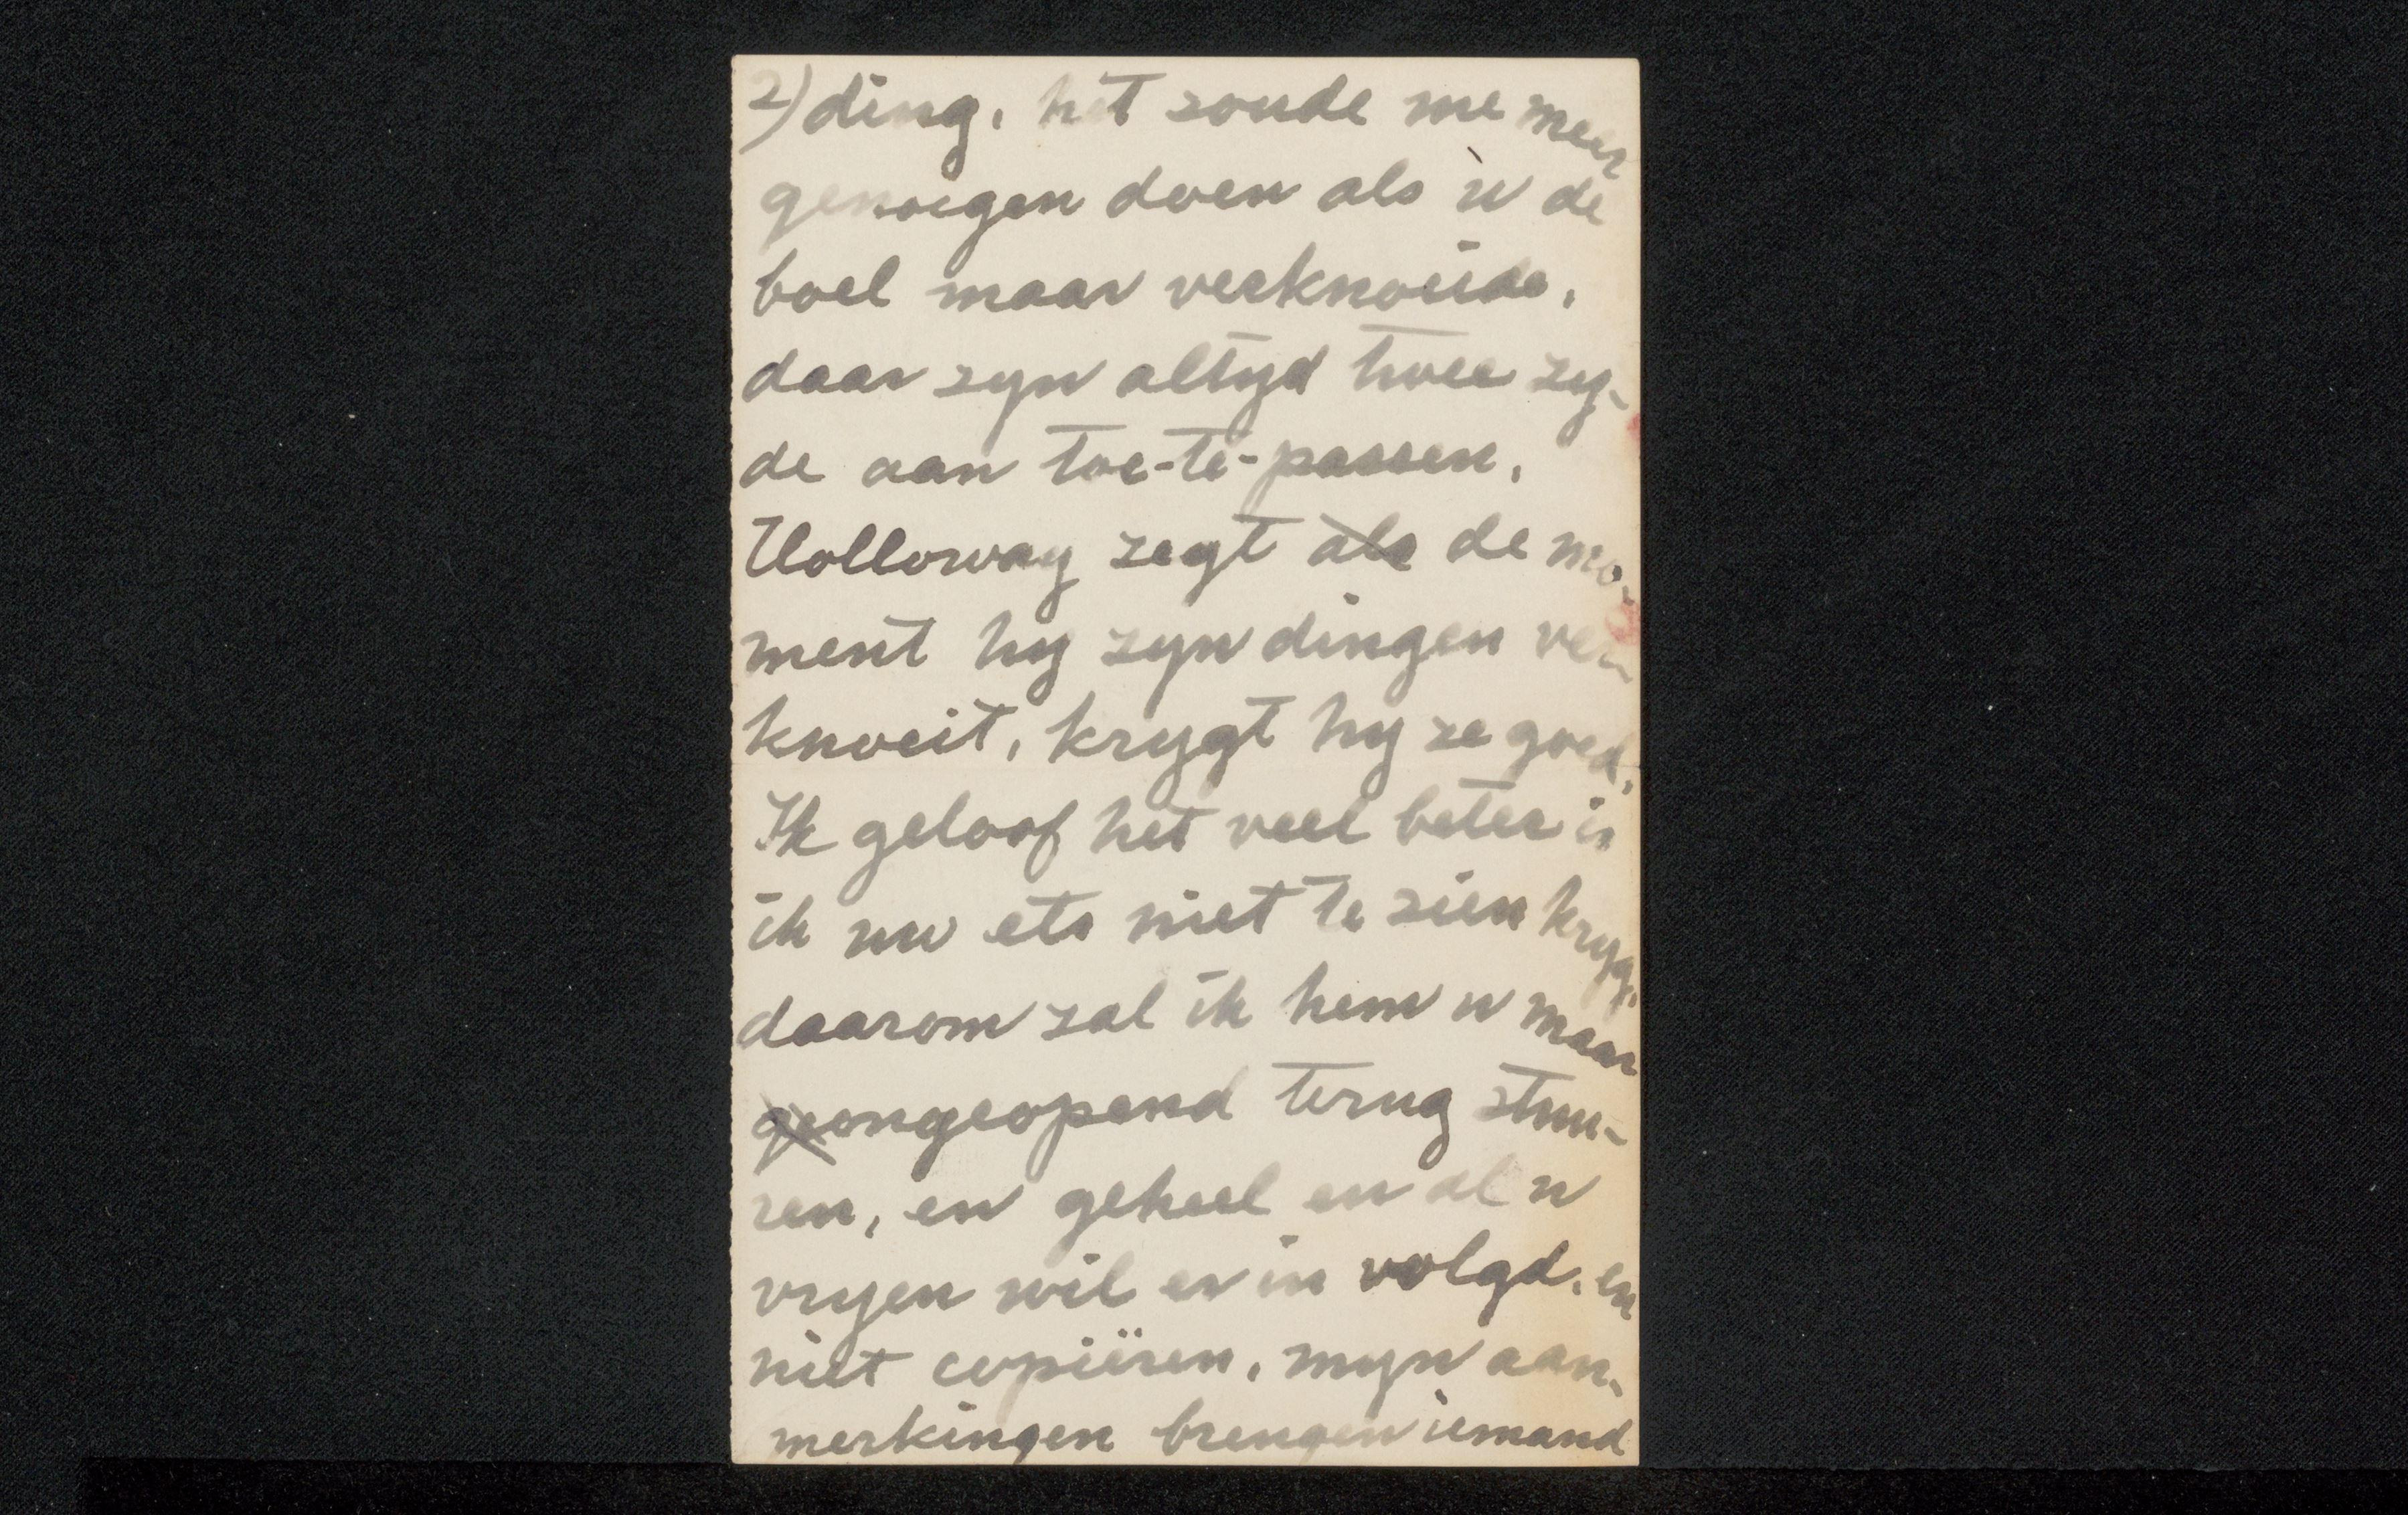 2) ding. het zoude me meer
genoegen doen als u de
boel maar verknoeide.
daar zyn altyd twee zy-
de aan toe-te-passen.
Holloway zegt als de mo-
ment hy zyn dingen ver-
knoeit, krygt hy ze goed.
Ik geloof het veel beter is
ik uw ets niet te zien kryg.
daarom zal ik hem u maar
geongeopend terug stuu-
ren, en geheel en al u
vryen wil er in volgd. en
niet copiëren. myn aan-
merkingen brengen iemand